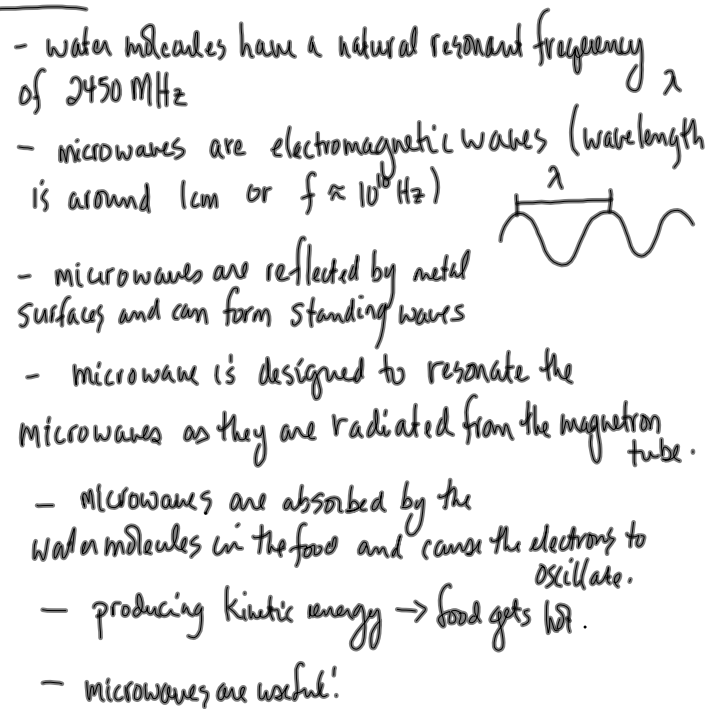 - water molecules have a natural resonant frequency
of 2450 MHz
λ
- microwaves are electromagnetic waves (wavelength
is around 1cm or f ≈ 10¹⁰ Hz)
λ
- microwaves are reflected by metal
surfaces and can form standing waves
- microwave is designed to resonate the
microwaves as they are radiated from the magnetron
tube.
- microwaves are absorbed by the
water molecules in the food and cause the electrons to
oscillate.
- producing kinetic energy → food gets hot.
- microwaves are useful!